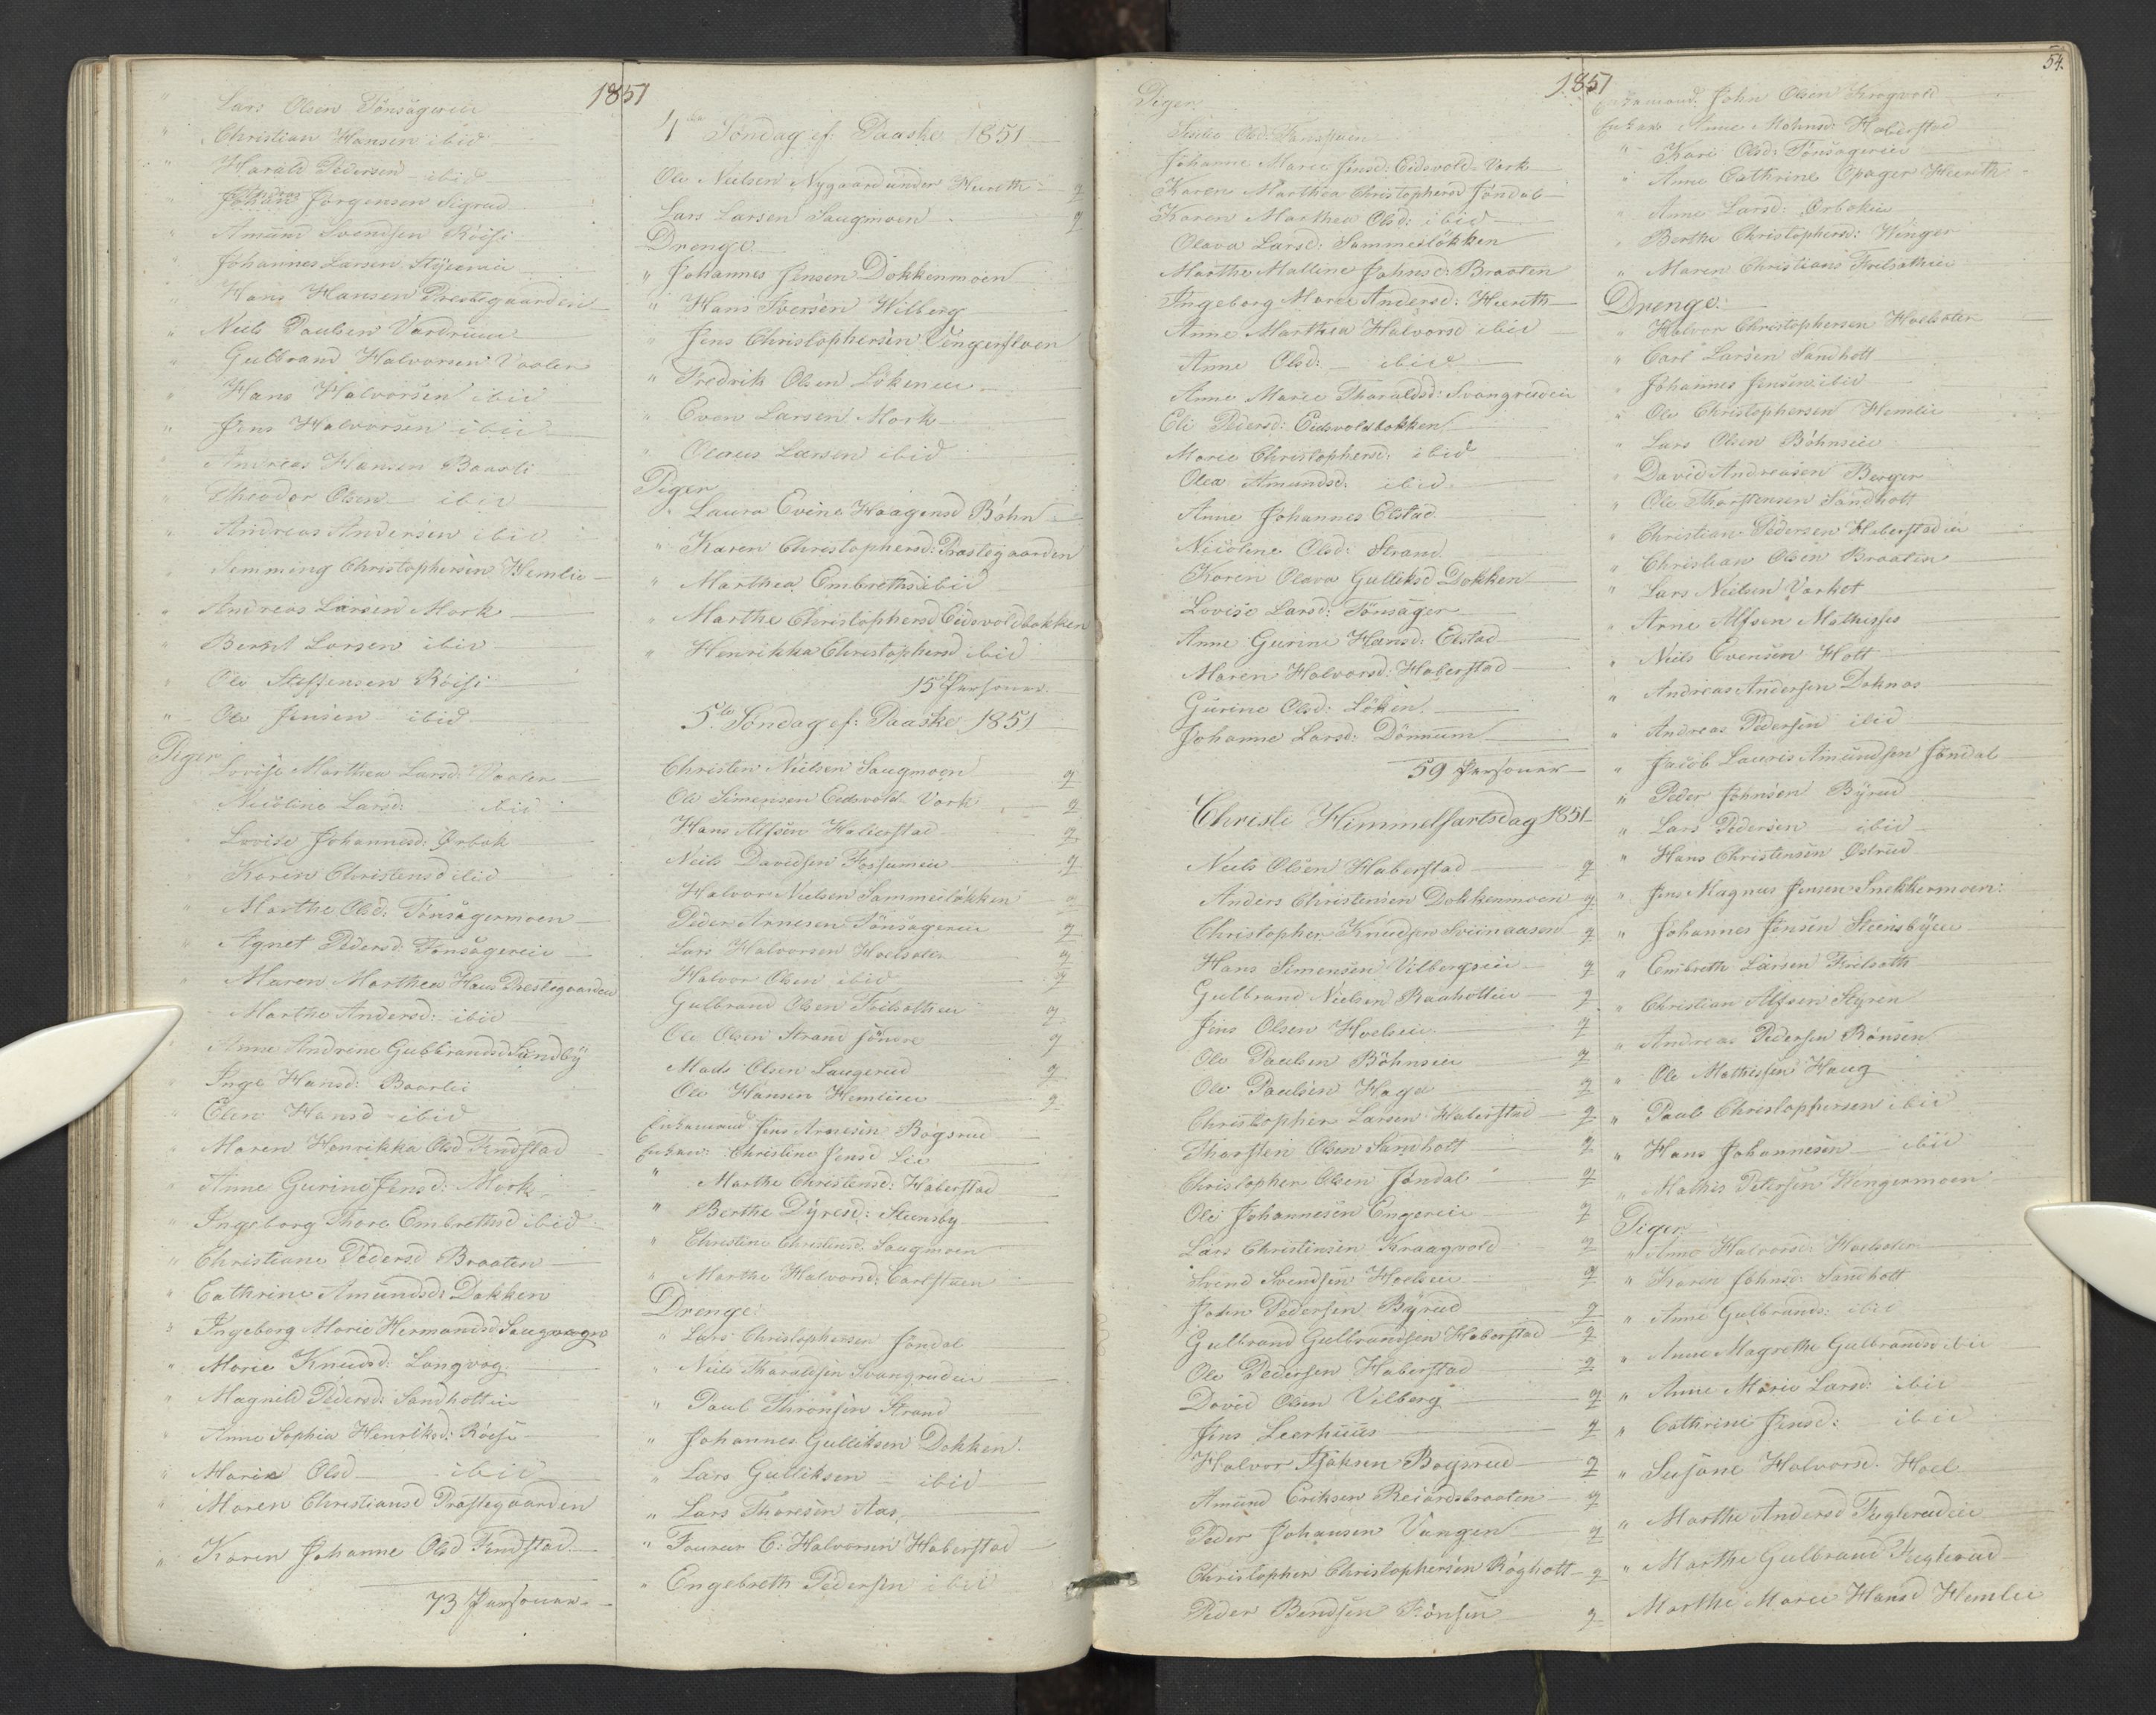 1851
" Lars Olsen Tönsagereie
" Christian Hansen ibid
" Harald Pedersen ibid
" Jörgensen Sigrud
" Amund Svendsen Röise
" Johannes Larsen Styreie
" Hans Hansen Prestegaardeie
" Niels Paulsen
" Gulbrand Halvorsen Vaalen
" Hans Halvorsen ibid
" Jens Halvorsen ibid
" Andreas Hansen Baarli
" Theodor Olsen ibid
" Andreas Andersen ibid
" Simming Christophersen Hemlie
" Andreas Larsen Mork
" Bernt Larsen ibid
" Ole Steffensen Röise
" Ole Jensen ibid
Piger
Lovise Marthea Larsd: Vaalen
Nicoline Larsd: ibid
" Lovise Johannesd: Ørbak
Karen Christensd ibid
" Marthe Olsd: Tönsagermoen
" Agnet Pedersd Tonsagereie
" Maren Marthea Hans Prestegaarden
" Marthe Andersd: ibid
" Anne Andrine Gulbrandsd Sundby
" Inge Hansd: Baarlie
" Elen Hansd ibid
" Maren Henrikka Olsd Findstad
" Anne Gurine Jensd: Mork
" Ingeborg Thore Embrethsd ibid
" Christiane Pedersd Braaten
" Cathrine Amundsd: Dokken
" Ingeborg Marie Hermansd Saugvogn
" Marie Knudsd: Langvog
" Magnild Pedersd: Sandholteie
" Anne Sophia Henriksd: Röise
" Maria Olsd ibid
" Maren Christiansd Præstegaarden
" Karen Johanne Olsd Findstad
73 Personer
4de Søndag ef: Paaske 1851
Ole Nielsen Nygaard under Hureth g
Lars Larsen Saugmoen g
Drenge
" Johannes Jensen Dokkenmoen
" Hans Iversen Wilberg
" Jens Christophersen Vengersloen
" Fredrik Olsen Lökeneie
" Even Larsen Mork
" Olaus Larsen ibid
Piger
" Laura Evine Haagensd Böhn
" Karen Christophersd: Præstegaarden
" Marthea Embrethsd ibid
" Marthe Christophersd Eidsvoldbakken
" Henrikka Christophersd ibid
15 Personer
5te Søndag ef: Paaske 1851
Christen Nielsen Saugmoen g
Ole Simensen Eidsvold Værk g
Hans Alfsen Haberstad g
Niels Davidsen Fossumeie g
Halvor Nielsen Sammeilökken g
Peder Arnesen Tönsagereie g
Lars Halvorsen Hoelsater g
Halvor Olsen ibid g
Gulbrand Olsen Frilsætheie g
Ole Olsen Strand söndre g
Mads Olsen Laugerud g
Ole Hansen Hemlieie g
Enkemand Jens Arnesen Bögsrud
Enker: Christine Jensd Lie
" Marthe Christensd: Haberstad
" Berthe Dyresd: Steensby
" Christine Christensd. Saugmoen
" Marthe Halvorsd: Carlstuen
Drenge:
" Lars Christophersen Jöndal
" Niels Tharaldsen Svangrudeie
" Paul Thronsen Strand
" Johannes Gulliksen Dokken
" Lars Gulliksen ibid
" Lars Thoresen Aas
" C: Halvorsen Haberstad
" Engebreth Pedersen ibid
1851
54.
Piger
Olsd:
Johanne Marie Jensd: Eidsvold-Værk
Karen Marthea Christophersd Jöndal
Karen Marthea Olsd: ibid
Olava Larsd: Sammeilökken
Marthe Malline Johnsd: Braaten
Ingeborg Marie Andersd: Hureth
Anne Marthea Halvorsd ibid
Anne Olsd: ibid
Anne Marie Tharaldsd: Svangrudeie
Eli Pedersd: Eidsvoldbakken
Marie Christophersd: ibid
Olea Amundsd: ibid
Anne Johannes Elstad
Nicoline Olsd: Strand
Karen Olava Gulliksd Dokken
Lovise Larsd: Tönsager
Anne Gurine Hansd: Elstad
Maren Halvorsd: Haberstad
Gurine Olsd: Löken
Johanne Larsd: Dönnum
59 Personer
Christi Himmelfartsdag 1851
Niels Olsen Haberstad g
Anders Christensen Dokkenmoen g
Christopher Knudsen Sviinaasen g
Hans Simensen Vilbergeie g
Gulbrand Nielsen Raaholteie g
Jens Olsen Hoeleie g
Ole Paulsen Böhnseie g
Ole Paulsen Haga g
Christopher Larsen Haberstad g
Thorsten Olsen Sandholt g
Christopher Olsen Jöndal g
Ole Johannesen Engereie g
Lars Christensen Kraagvold g
Svend Svendsen Hoeleie g
John Pedersen Byrud g
Gulbrand Gulbrandsen Haberstad g
Ole Pedersen Haberstad g
David Olsen Vilberg g
Jens Leerhuus g
Halvor Isaksen Bogsrud g
Amund Eriksen Reiardsbraaten g
Peder Johansen Vangen g
Christopher Christophersen Rögholt g
Peder Bendsen Rönsen g
Enkemand: John Olsen Krogvold
Enker: Anne Mohnsd: Haberstad
" Kari Olsd: Tönsagereie
" Anne Cathrine Opager Hureth
" Anne Larsd: Ørbakeie
" Berthe Christophersd: Winger
" Maren Christians Frilsætheie
Drenge:
" Halvor Christophersen Hoelsater
" Carl Larsen Sandholt
" Johannes Jensen ibid
" Ole Christophersen Hemlie
" Lars Olsen Böhnseie
" David Andreasen Berger
" Ole Thorstensen Sandholt
" Christian Pedersen Haberstadeie
" Christian Olsen Braaten
" Lars Nielsen Værket
" Arne Alfsen
" Niels Evensen Holt
" Andreas Andersen Doknas
" Andreas Pedersen ibid
" Jacob Lauris Amundsen Jöndal
" Peder Johnsen Byrud
" Lars Pedersen ibid
" Hans Christensen Østrud
" Jens Magnus Jensen Snekkermoen:
" Johannes Jensen Steensbyeie
" Embreth Larsen Frilsæth
" Christian Alfsen Styren
" Andreas Pedersen Rönsen
" Ole Mathisen Haug
" Paul Christophersen ibid
" Hans Johannesen ibid
" Mathis Petersen Wengermoen
Piger
" Anne Halvorsd: Hoelsater
" Karen Johnsd: Sandholt
" Anne Gulbrands: ibid
" Anne Magrethe Gulbrandsd ibid
" Anne Marie Larsd: ibid
" Cathrine Jensd: ibid
" Susane Halvorsd. Hoel
" Marthe Andersd Fuglerudeie
" Marthe Gulbrand Fuglerud
Marthe Marie Hansd Hemlie